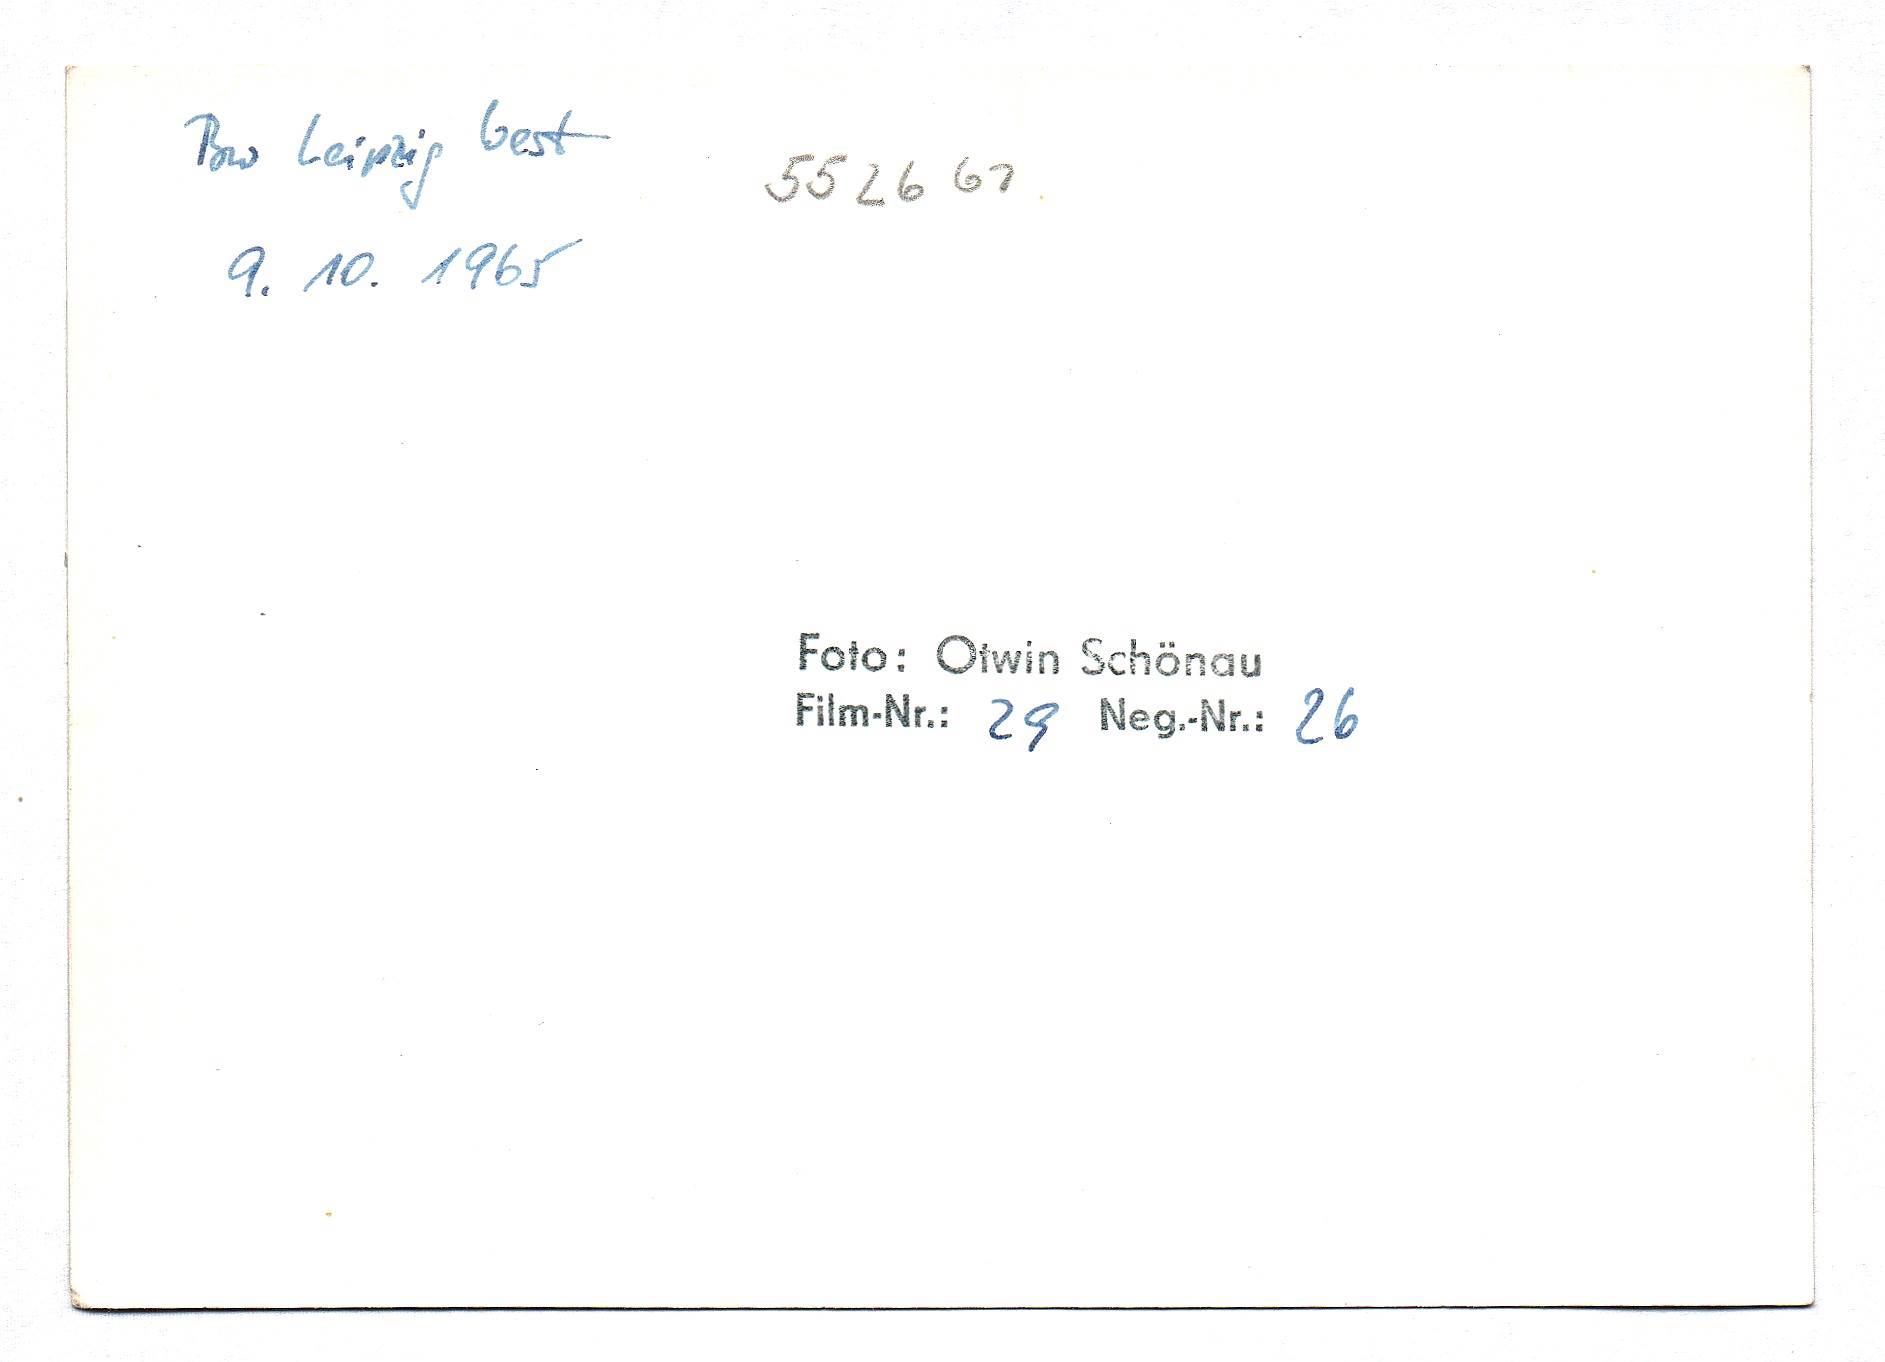 Bw Leipzig West
5526 67
9. 10. 1965
Foto: Otwin Schönau
Film-Nr.: 29 Neg.-Nr.: 26